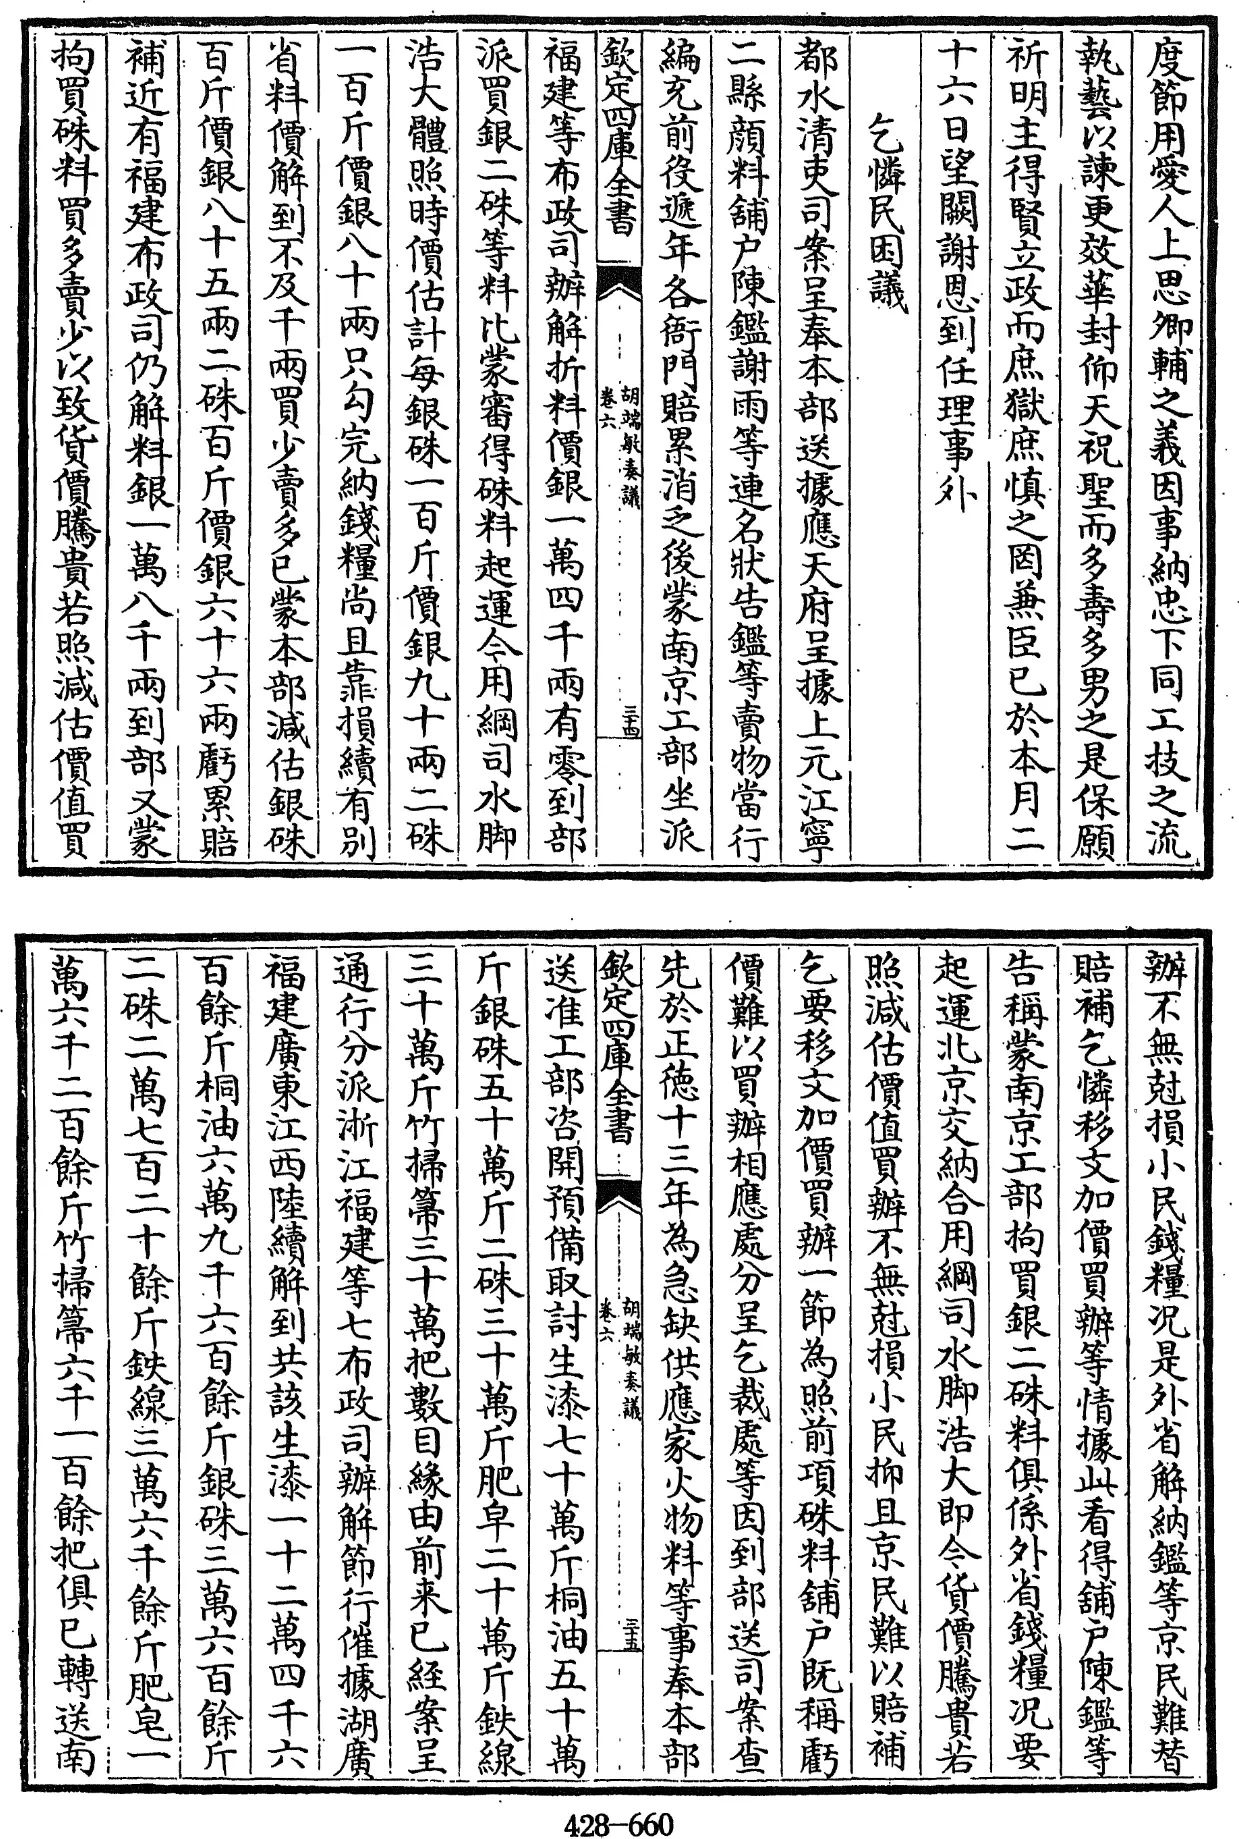 度節用愛人上思卿輔之義因事納忠下同工技之流
執藝以諫更效華封仰天祝聖而多壽多男之是保願
祈明主得賢立政而庶獄庶慎之罔兼臣已於本月二
十六日望闕謝恩到任理事外
乞憐民困議
都水清吏司案呈奉本部送據應天府呈據上元江寧
二縣顔料舖户陳鑑謝雨等連名狀告鑑等賣物當行
編充前役遞年各衙門賠累消乏後蒙南京工部坐派
欽定四庫全書
胡端敏奏議
卷六
三十四
福建等布政司辦解折料價銀一萬四千兩有零到部
派買銀二硃等料比蒙審得硃料起運合用綱司水脚
浩大體照時價估計每銀硃一百斤價銀九十兩二硃
一百斤價銀八十兩只勾完納錢糧尚且靠損續有别
省料價解到不及千兩買少賣多已蒙本部減估銀硃
百斤價銀八十五兩二硃百斤價銀六十六兩虧累賠
補近有福建布政司仍解料銀一萬八千兩到部又蒙
拘買硃料買多賣少以致貨價騰貴若照減估價值買
辦不無尅損小民錢糧况是外省解納鑑等京民難替
賠補乞憐移文加價買辦等情據此看得舖户陳鑑等
告稱蒙南京工部拘買銀二硃料俱係外省錢糧况要
起運北京交納合用綱司水脚浩大即今貨價騰貴若
照減估價值買辦不無尅損小民抑且京民難以賠補
乞要移文加價買辦一節為照前項硃料舖户既稱虧
價難以買辦相應處分呈乞裁處等因到部送司案查
先於正德十三年為急缺供應家火物料等事奉本部
欽定四庫全書
胡端敏奏議
卷六
三十五
送准工部咨開預備取討生漆七十萬斤桐油五十萬
斤銀硃五十萬斤二硃三十萬斤肥皁二十萬斤鉄線
三十萬斤竹掃箒三十萬把數目緣由前来已經案呈
通行分派淅江福建等七布政司辦解節行催據湖廣
福建廣東江西陸續解到共該生漆一十二萬四千六
百餘斤桐油六萬九千六百餘斤銀硃三萬六百餘斤
二硃二萬七百二十餘斤鉄線三萬六千餘斤肥皂一
萬六千二百餘斤竹掃箒六千一百餘把俱已轉送南
428-660